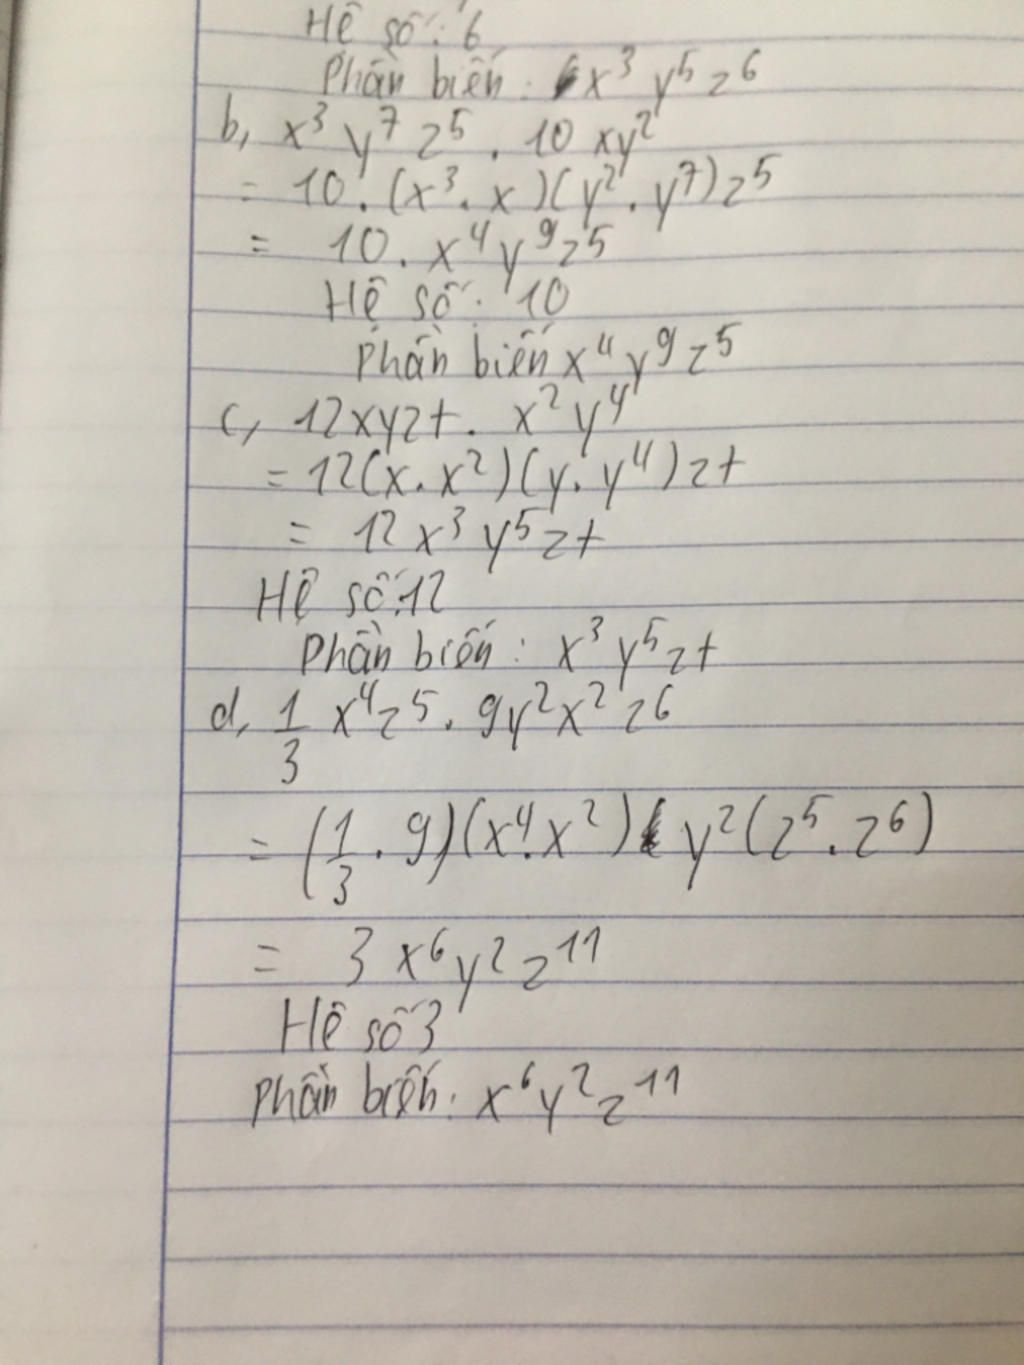 Hệ số: 6
Phần biến: x³ y⁵ z⁶
b, x³ y⁷ z⁵ . 10 xy²
= 10. (x³. x)(y². y⁷) z⁵
= 10. x⁴ y⁹ z⁵
Hệ số: 10
Phần biến x⁴ y⁹ z⁵
c, 12xyzt. x² y⁴
= 12(x. x²)(y. y⁴) zt
= 12 x³ y⁵ zt
Hệ số: 12
Phần biến: x³ y⁵ zt
d, 1/3 x⁴ z⁵ . 9y² x² z⁶
= (1/3 . 9)(x⁴. x²) y² (z⁵ . z⁶)
= 3 x⁶ y² z¹¹
Hệ số 3
Phần biến: x⁶ y² z¹¹